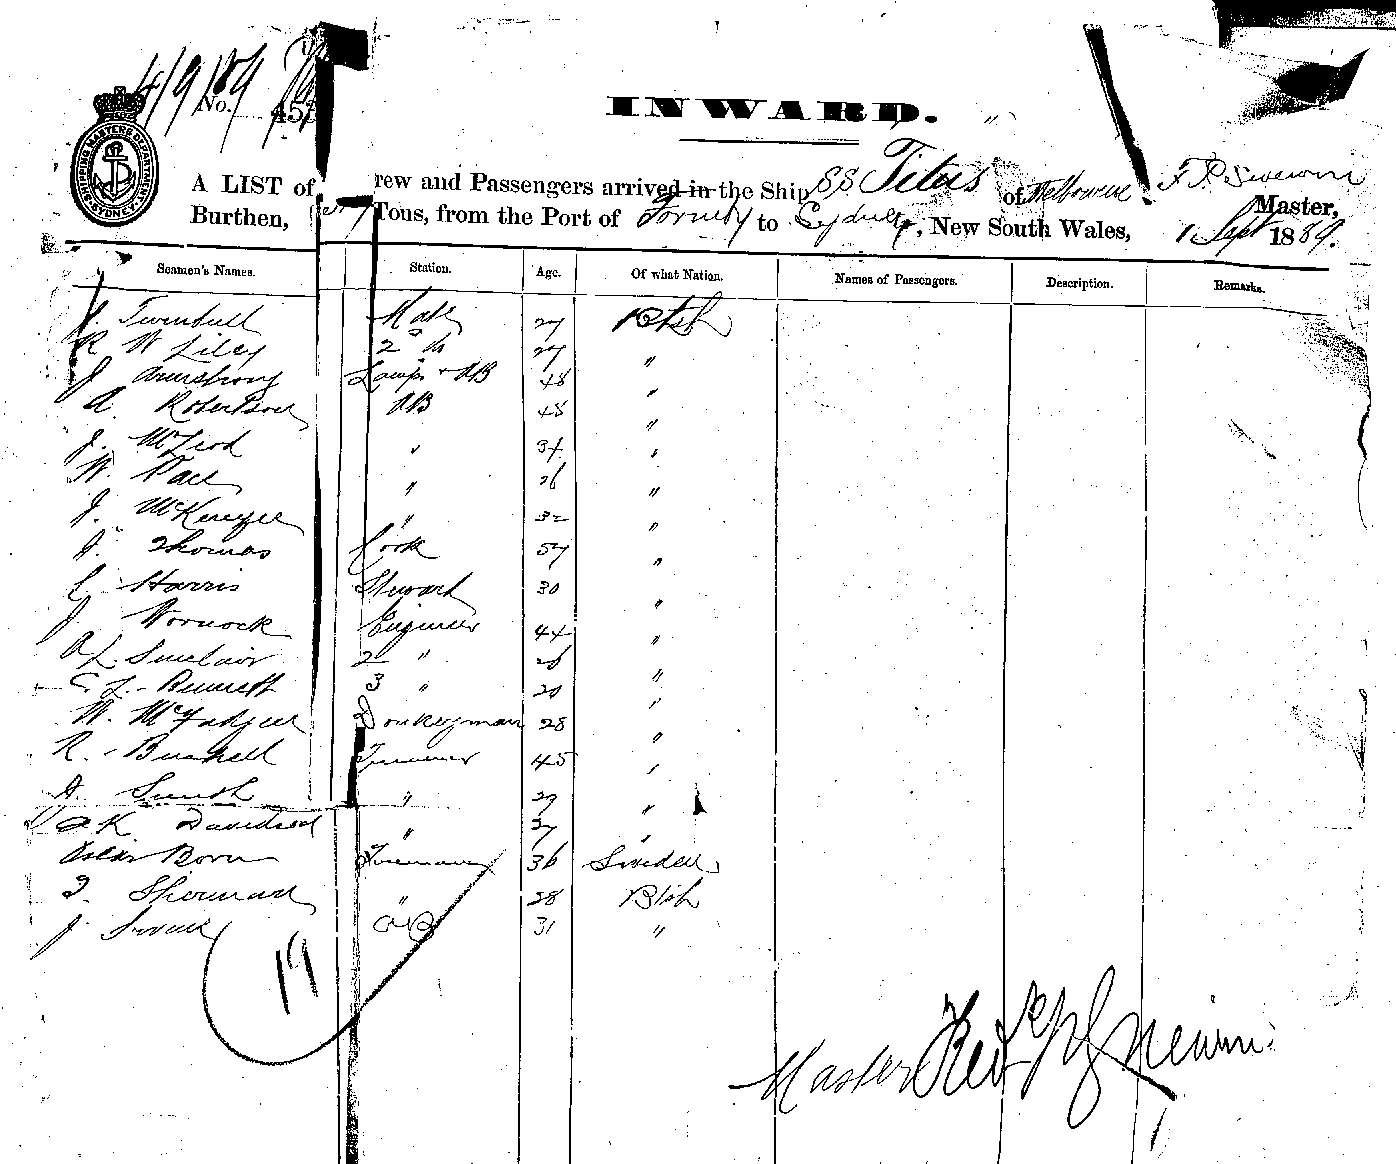 4/9/89
No. 453
INWARD.
SHIPPING MASTERS DEPARTMENT SYDNEY
A LIST of rew and Passengers arrived in the Ship SS Titus of Melbourne
Burthen, Tons, from the Port of Formby to Sydney, New South Wales, Master, 1 Sept 1889.
Seamen's Names. Station. Age. Of what Nation. Names of Passengers. Description. Remarks.
Turnbull Mate 27 Btsh
R W Liley 2nd do 27 "
J Armstrong Lamps & AB 48 "
A. Robertson AB 48 "
J. McLeod " 34 "
W. Pace " 26 "
J. McKenzie " 32 "
A. Thomas Cook 57 "
C. Harris Steward 30 "
J Wornock Engineer 44 "
A L. Sinclair 2 " 26 "
C. L. Bennett 3 " 20 "
W. McFadgen Donkeyman 28 "
R. Bushell Trimmer 45 "
A. Smith " 29 "
K. Davidson " 37 "
Oscar Born Fireman 36 Sweden
Sherman " 28 Btsh
J AB 31 "
19
Master Fred